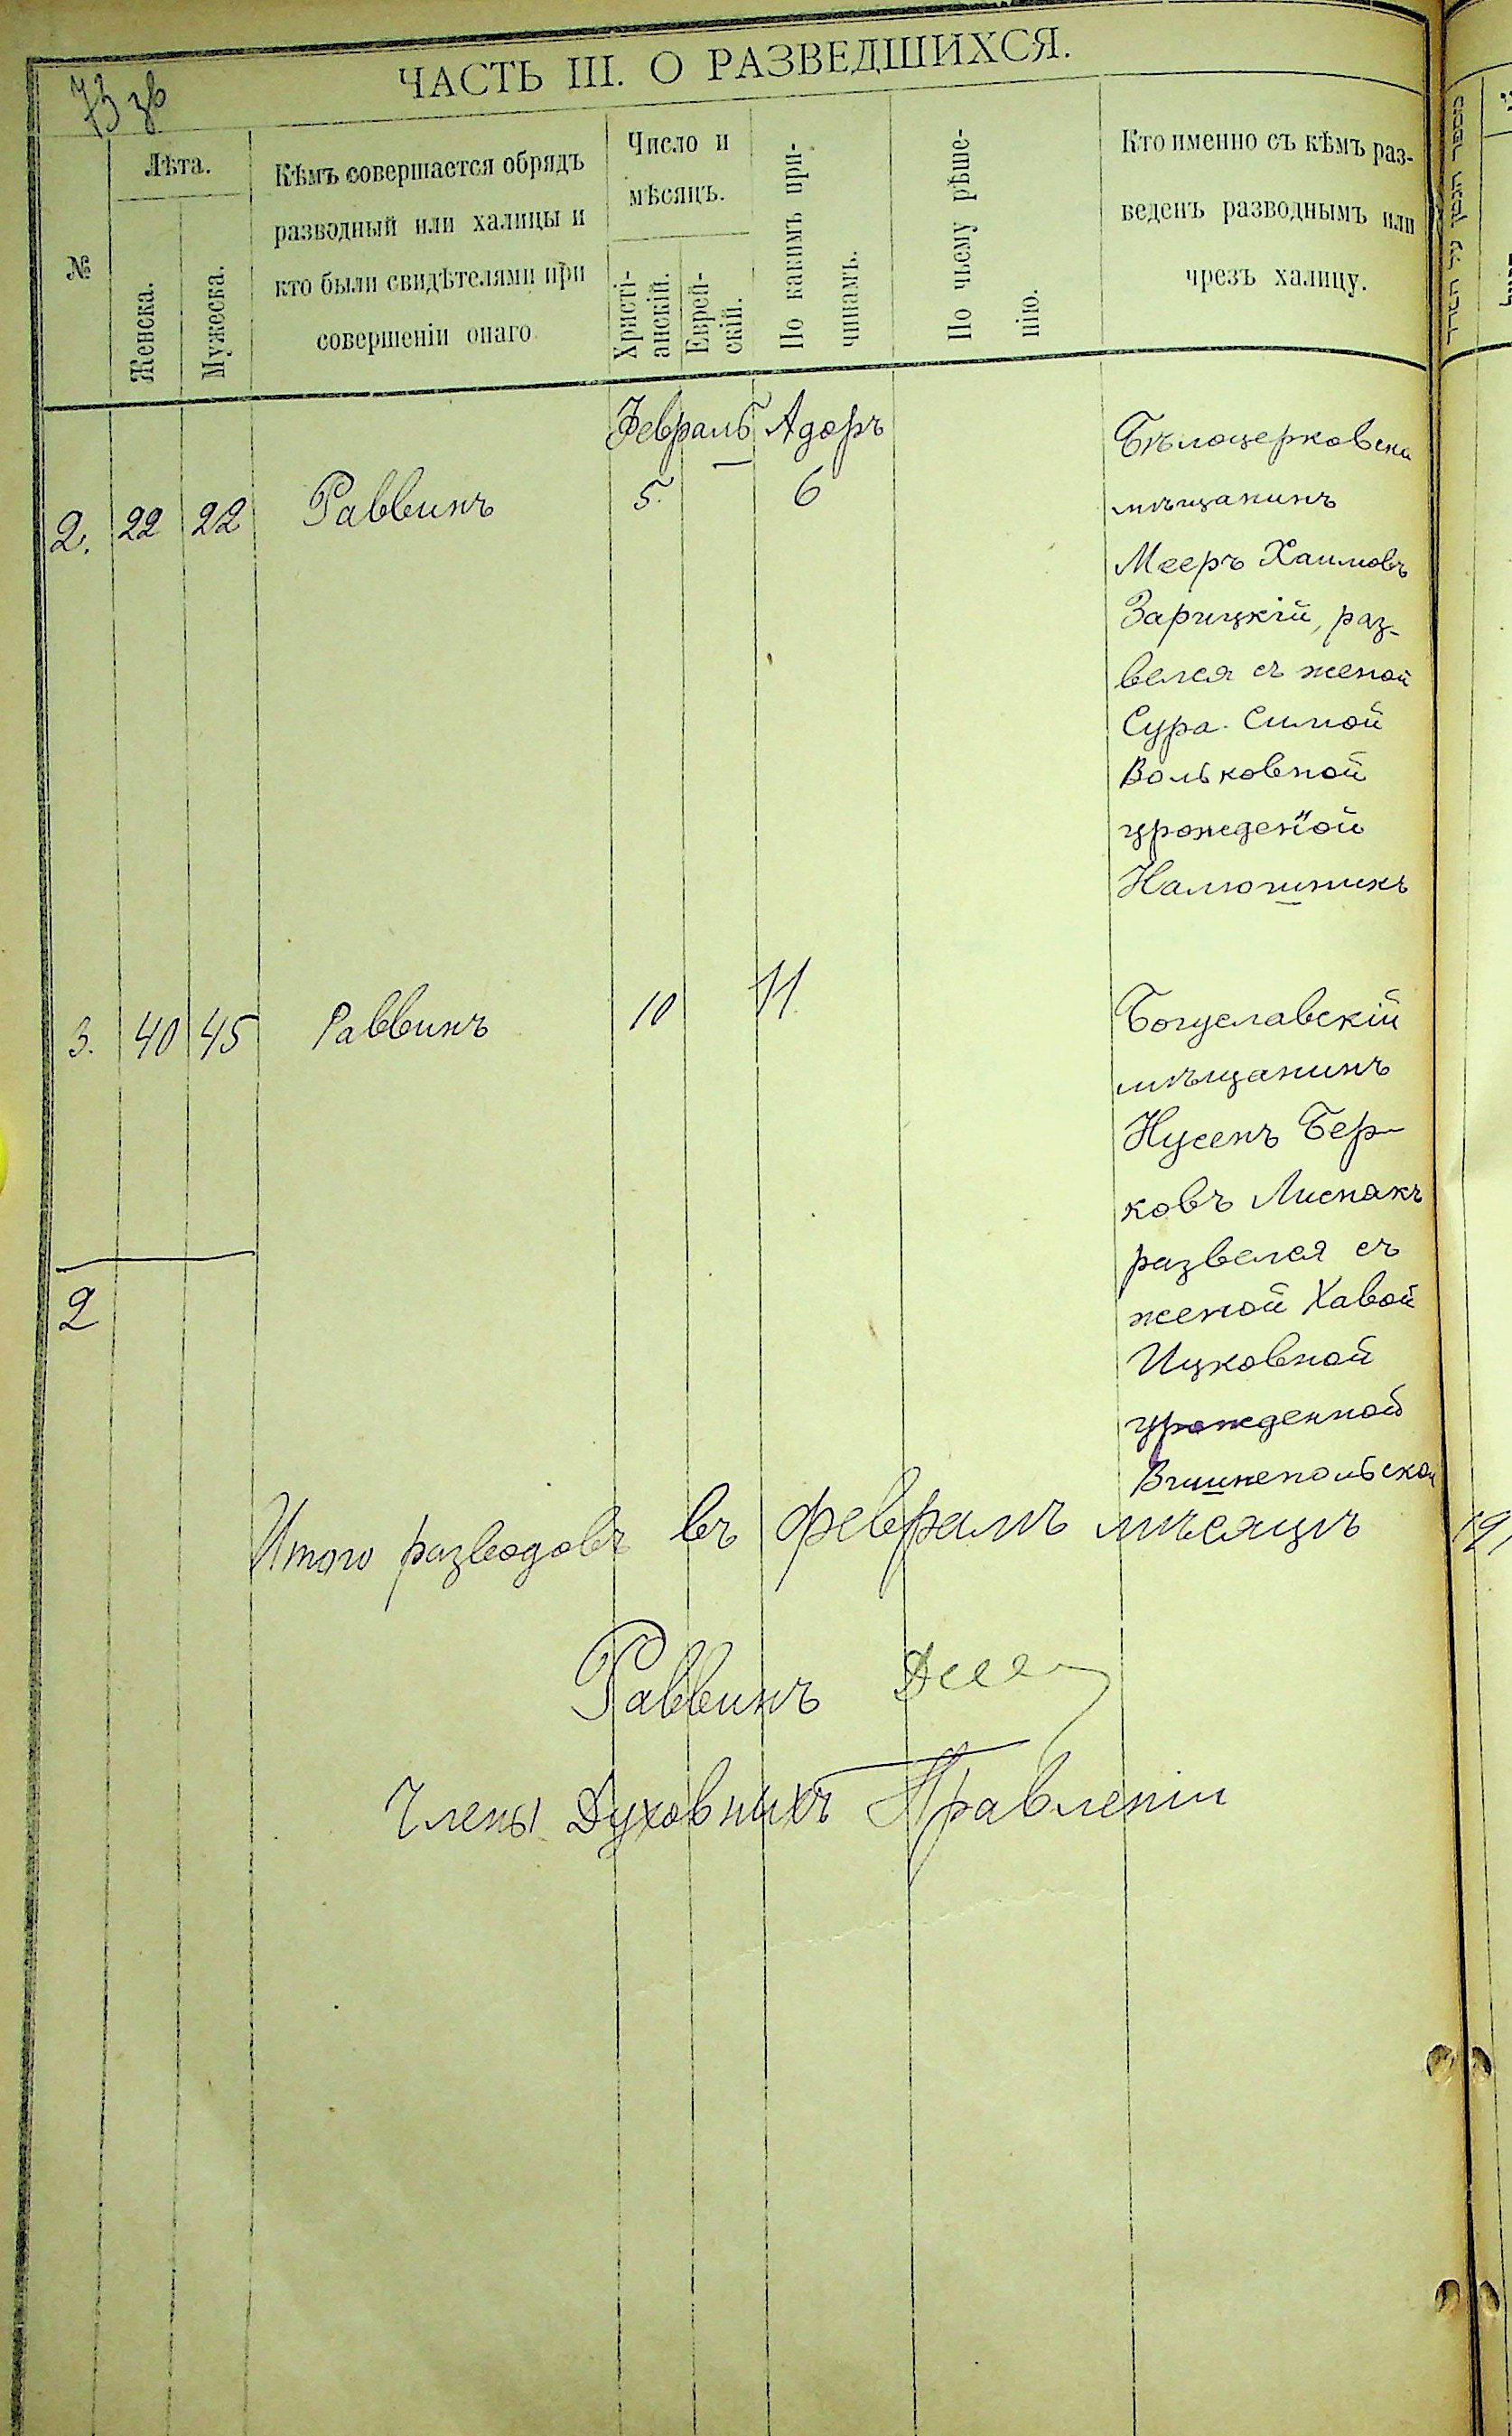 73 зв
ЧАСТЬ III. О РАЗВЕДШИХСЯ.
№
Лѣта.
Женска.
Мужеска.
Кѣмъ совершается обрядъ
разводный или халицы и
кто были свидѣтелями при
совершеніи онаго.
Число и
мѣсяцъ.
Христі-
анскій.
Еврей-
скій.
По какимъ при-
чинамъ.
По чьему рѣше-
нію.
Кто именно съ кѣмъ раз-
веденъ разводнымъ или
чрезъ халицу.
Февраль Адаръ
2. 22 22 Раввинъ 5. 6
Бѣлоцерковски
мѣщанинъ
Мееръ Хаимовъ
Зарицкій, раз-
велся съ женой
Сура-Симой
Вольковной
урожденой
Налюшникъ
3. 40 45 Раввинъ 10 11
Богуславскій
мѣщанинъ
Нусенъ Бер-
ковъ Лиспакъ
развелся съ
женой Хавой
Ицковной
урожденной
Вишнепольской
2
Итого разводовъ въ февралѣ мѣсяцѣ
Раввинъ
Члены Духовныхъ Правленіи